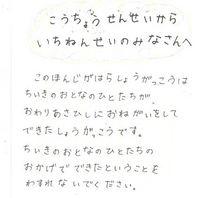 こうちょうせんせいから
いちねんせいのみなさんへ
このほんじがはらしょうがっこうは
ちいきのおとなのひとたちが
おわりあさひしにおねがいをして
できたしょうがっこうです。
ちいきのおとなのひとたちの
おかげでできたということを
わすれないでください。